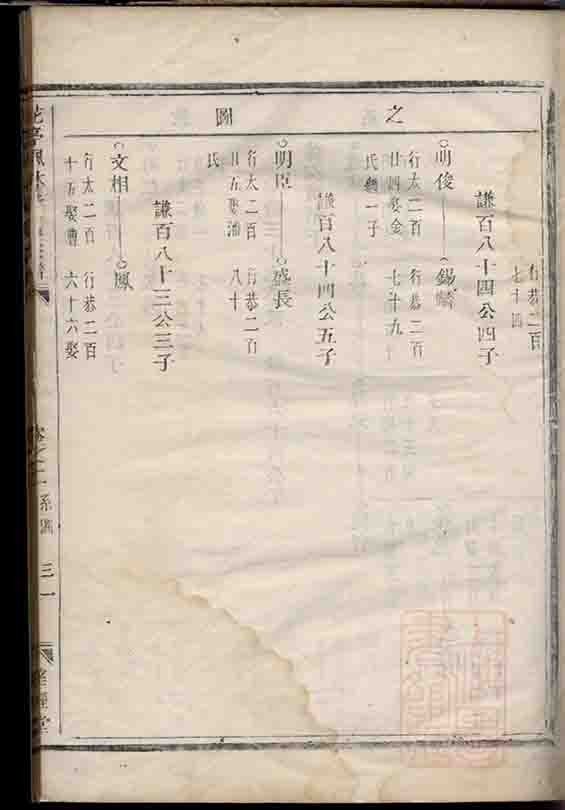 之
圖
行恭二百
七十四
謙百八十四公四子
明俊
錫疄
行太二百
行恭二百
廿四娶金
七十九
氏繼一子
謙百八十四公五子
明臣
盛長
行太二百
行恭二百
廿五娶潘
八十
氏
謙百八十三公三子
文相
鳳
行太二百
行恭二百
十五娶曹
六十六娶
卷之二
系圖
三一